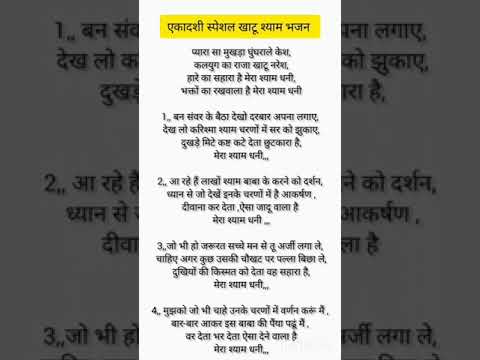 एकादशी स्पेशल खाटू श्याम भजन
प्यारा सा मुखड़ा घुंघराले केश,
कलयुग का राजा खाटू नरेश,
हारे का सहारा है मेरा श्याम धनी,
भक्तों का रखवाला है मेरा श्याम धनी
1,, बन संवर के बैठा देखो दरबार अपना लगाए,
देख लो करिश्मा श्याम चरणों में सर को झुकाए,
दुखड़े मिटे कष्ट कटे देता छुटकारा है,
मेरा श्याम धनी,,,
2,, आ रहे हैं लाखों श्याम बाबा के करने को दर्शन,
ध्यान से जो देखें इनके चरणों में है आकर्षण ,
दीवाना कर देता ,ऐसा जादू वाला है
मेरा श्याम धनी ,,,
3,,जो भी हो जरूरत सच्चे मन से तू अर्जी लगा ले,
चाहिए अगर कुछ उसकी चौखट पर पल्ला बिछा ले,
दुखियों की किस्मत को देता वह सहारा है,
मेरा श्याम धनी,,,
4,, मुझको जो भी चाहे उनके चरणों में वर्णन करूं मैं ,
बार-बार आकर इस बाबा की पैंया पढूं मैं ,
वर देता भर देता ऐसा देने वाला है
मेरा श्याम धनी,,,